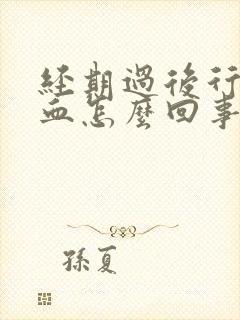 經期過後行
血怎麼回事
孫夏